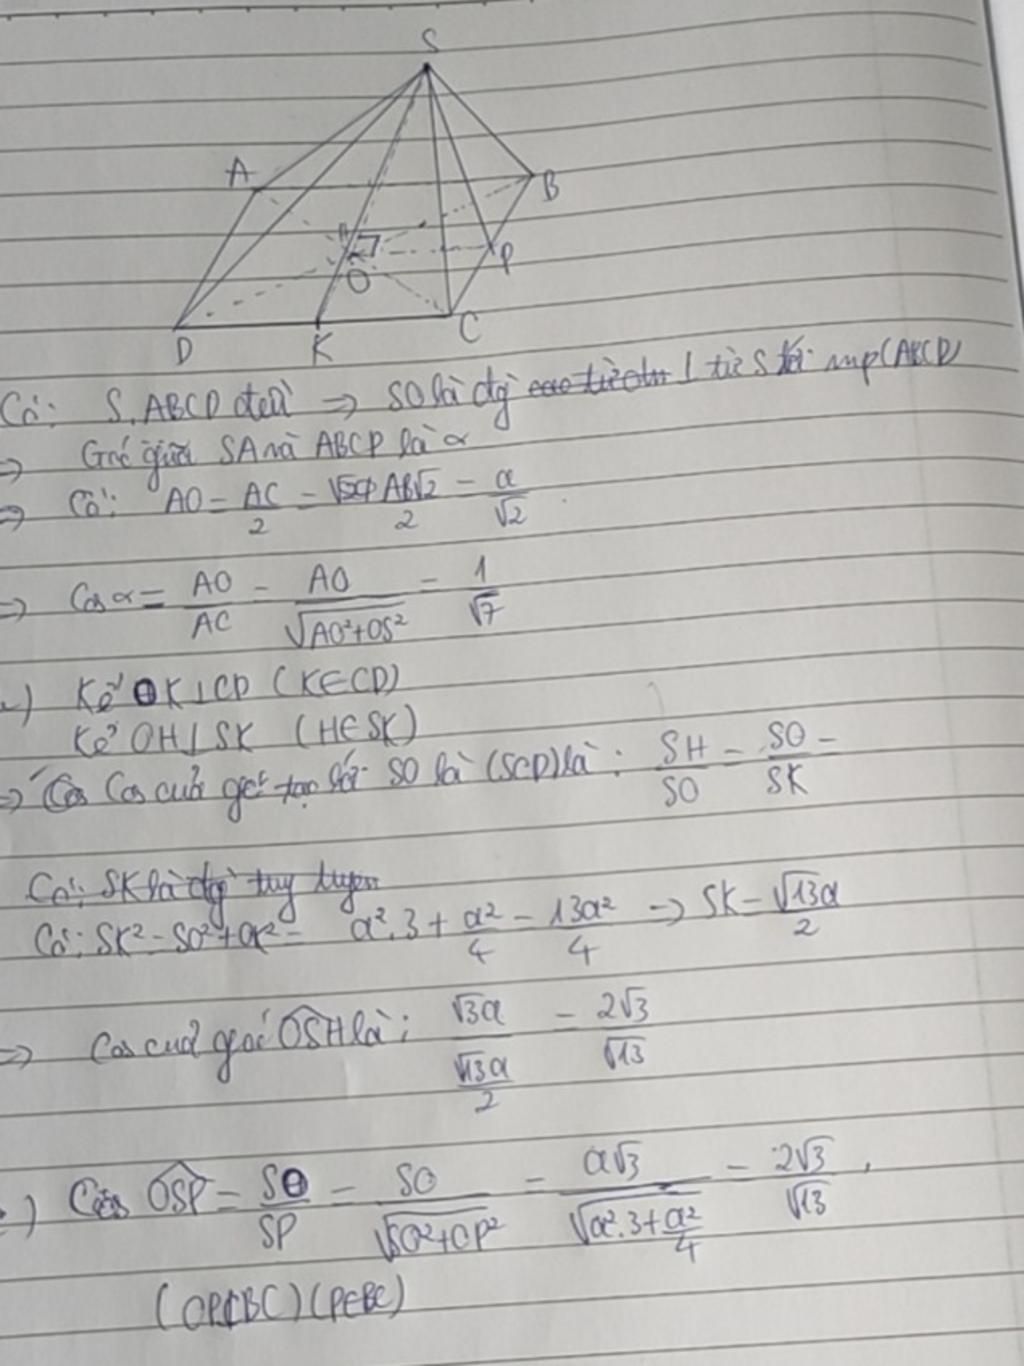 S
A
B
O
P
D K C
Có: S.ABCD đều ⇒ SO là đg cao từ ⊥ từ S tới mp(ABCD)
⇒ Góc giữa SA và ABCD là α
⇒ Có: AO = AC/2 = AB√2/2 = a/√2
⇒ Cos α = AO/AC = AO/√(AO²+OS²) = 1/√7
) Kẻ OK⊥CD (K∈CD)
Kẻ OH⊥SK (H∈SK)
⇒ Cos của góc tạo bởi SO là (SCD) là: SH/SO = SO/SK =
Có: SK là đg
Có: SK² = SO²+OK² = a².3 + a²/4 = 13a²/4 → SK = √13a/2
⇒ Cos của góc OSH là: √3a/(√13a/2) = 2√3/√13
) Cos OSP = SO/SP = SO/√(SO²+OP²) = a√3/√(a².3+a²/4) = 2√3/√13.
(OP⊥BC) (P∈BC)